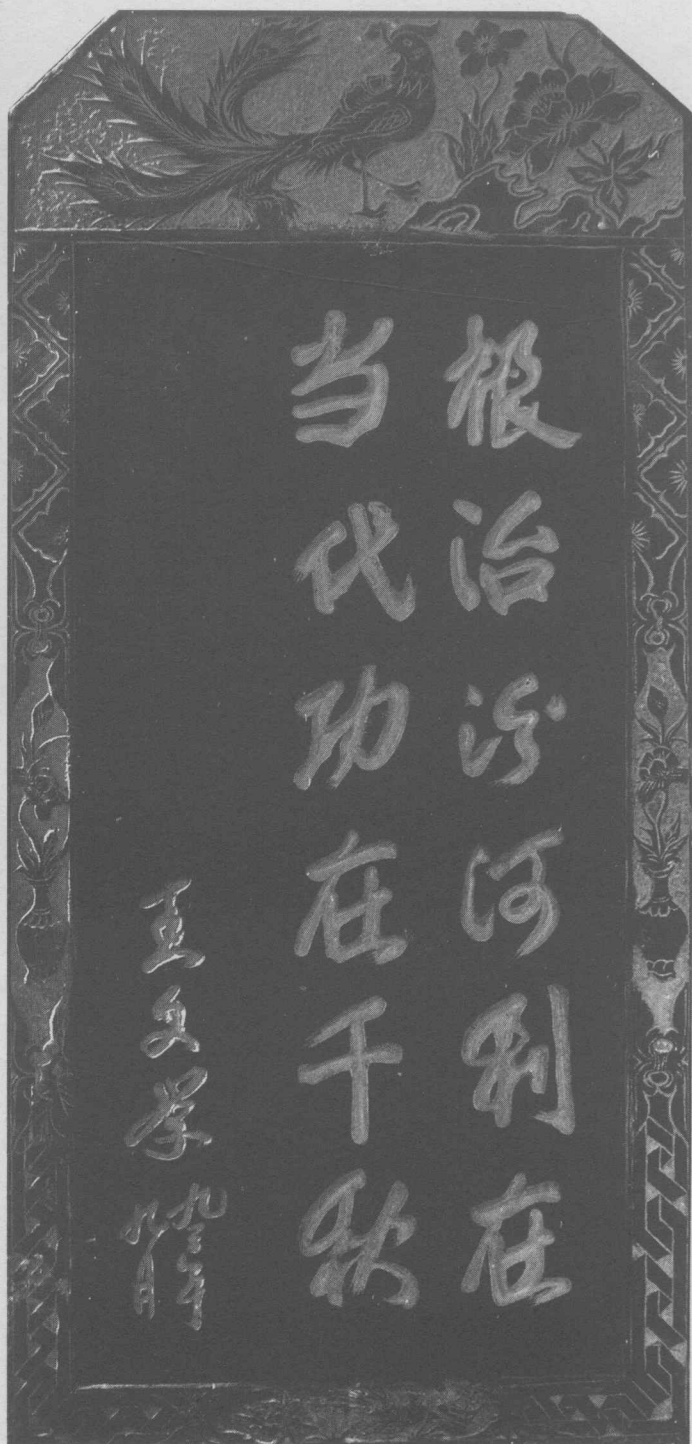 根治汾河利在
当代功在千秋
王文学
九三年
九月